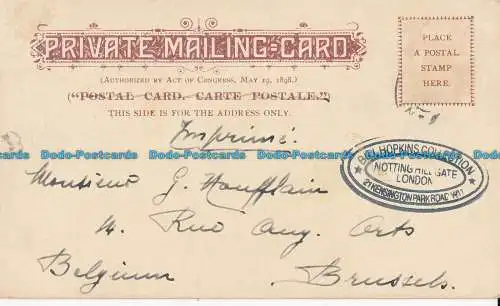 PRIVATE MAILING-CARD
(AUTHORIZED BY ACT OF CONGRESS, MAY 19, 1898.)
("POSTAL CARD, CARTE POSTALE.")
THIS SIDE IS FOR THE ADDRESS ONLY.
PLACE
A POSTAL
STAMP
HERE.
Imprimé.
Do-Postcards Do-Postcards Do-Postcards Do-Postcards Do-Postcards
HOPKINS COLLECTION
NOTTING HILL GATE
LONDON
21 KENSINGTON PARK ROAD W11
Monsieur G.
14. Rue Aug. Orts
Belgium Brussels.